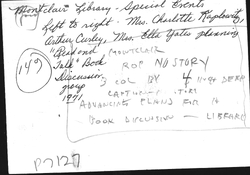 Montclair Library - Special Events
Left to right - Mrs. Charlotte Kaplowitz,
Arthur Curley, Mrs. Ella Yates planning
"Read and Talk" Book
Discussion
group
1971
149
MONTCLAIR
ROP NO STORY
3 COL BY 4 INCH DEEP
CAPTION
ADVANCING PLANS FOR A
BOOK DISCUSSION - LIBRARY
P7127